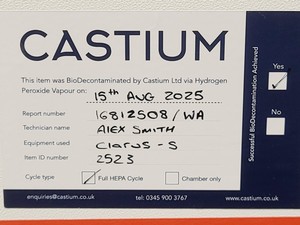 CASTIUM
This item was BioDecontaminated by Castium Ltd via Hydrogen
Peroxide Vapour on: 15th AUG 2025
Report number 16812508/WA
Technician name ALEX SMITH
Equipment used Clarus - S
Item ID number 2523
Cycle type Full HEPA Cycle Chamber only
enquiries@castium.com tel: 0345 900 3767 www.castium.co.uk
Successful BioDecontamination Achieved
Yes
No